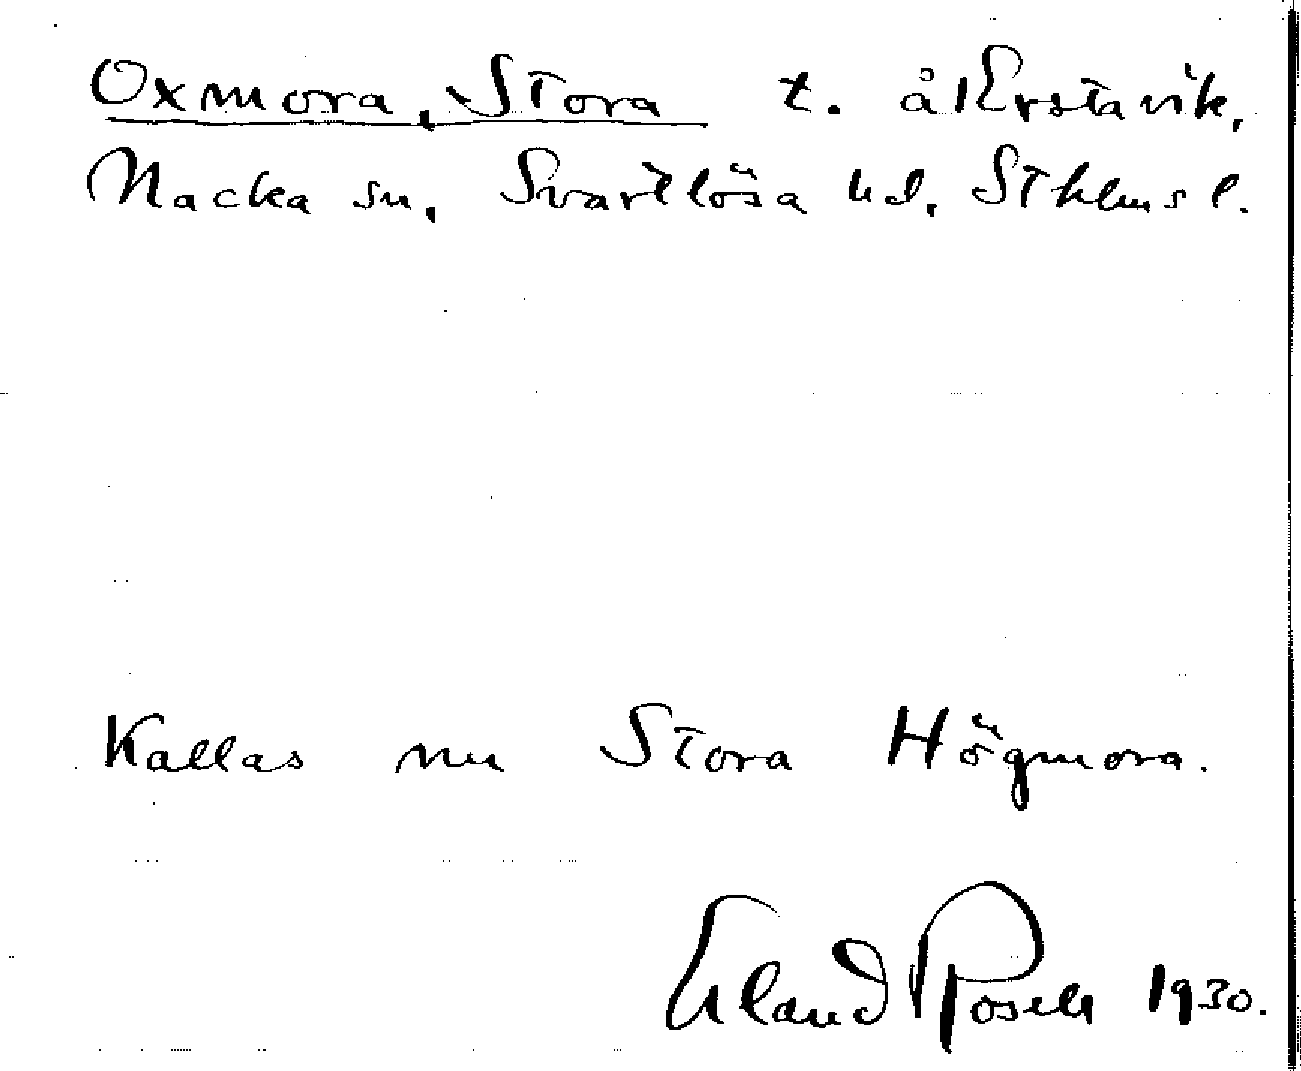 Oxmora, Stora t. å /Erstavik,
Nacka sn, Svartlösa hd, Sthlms l.
Kallas nu Stora Högmora.
Erland Rosell 1930.